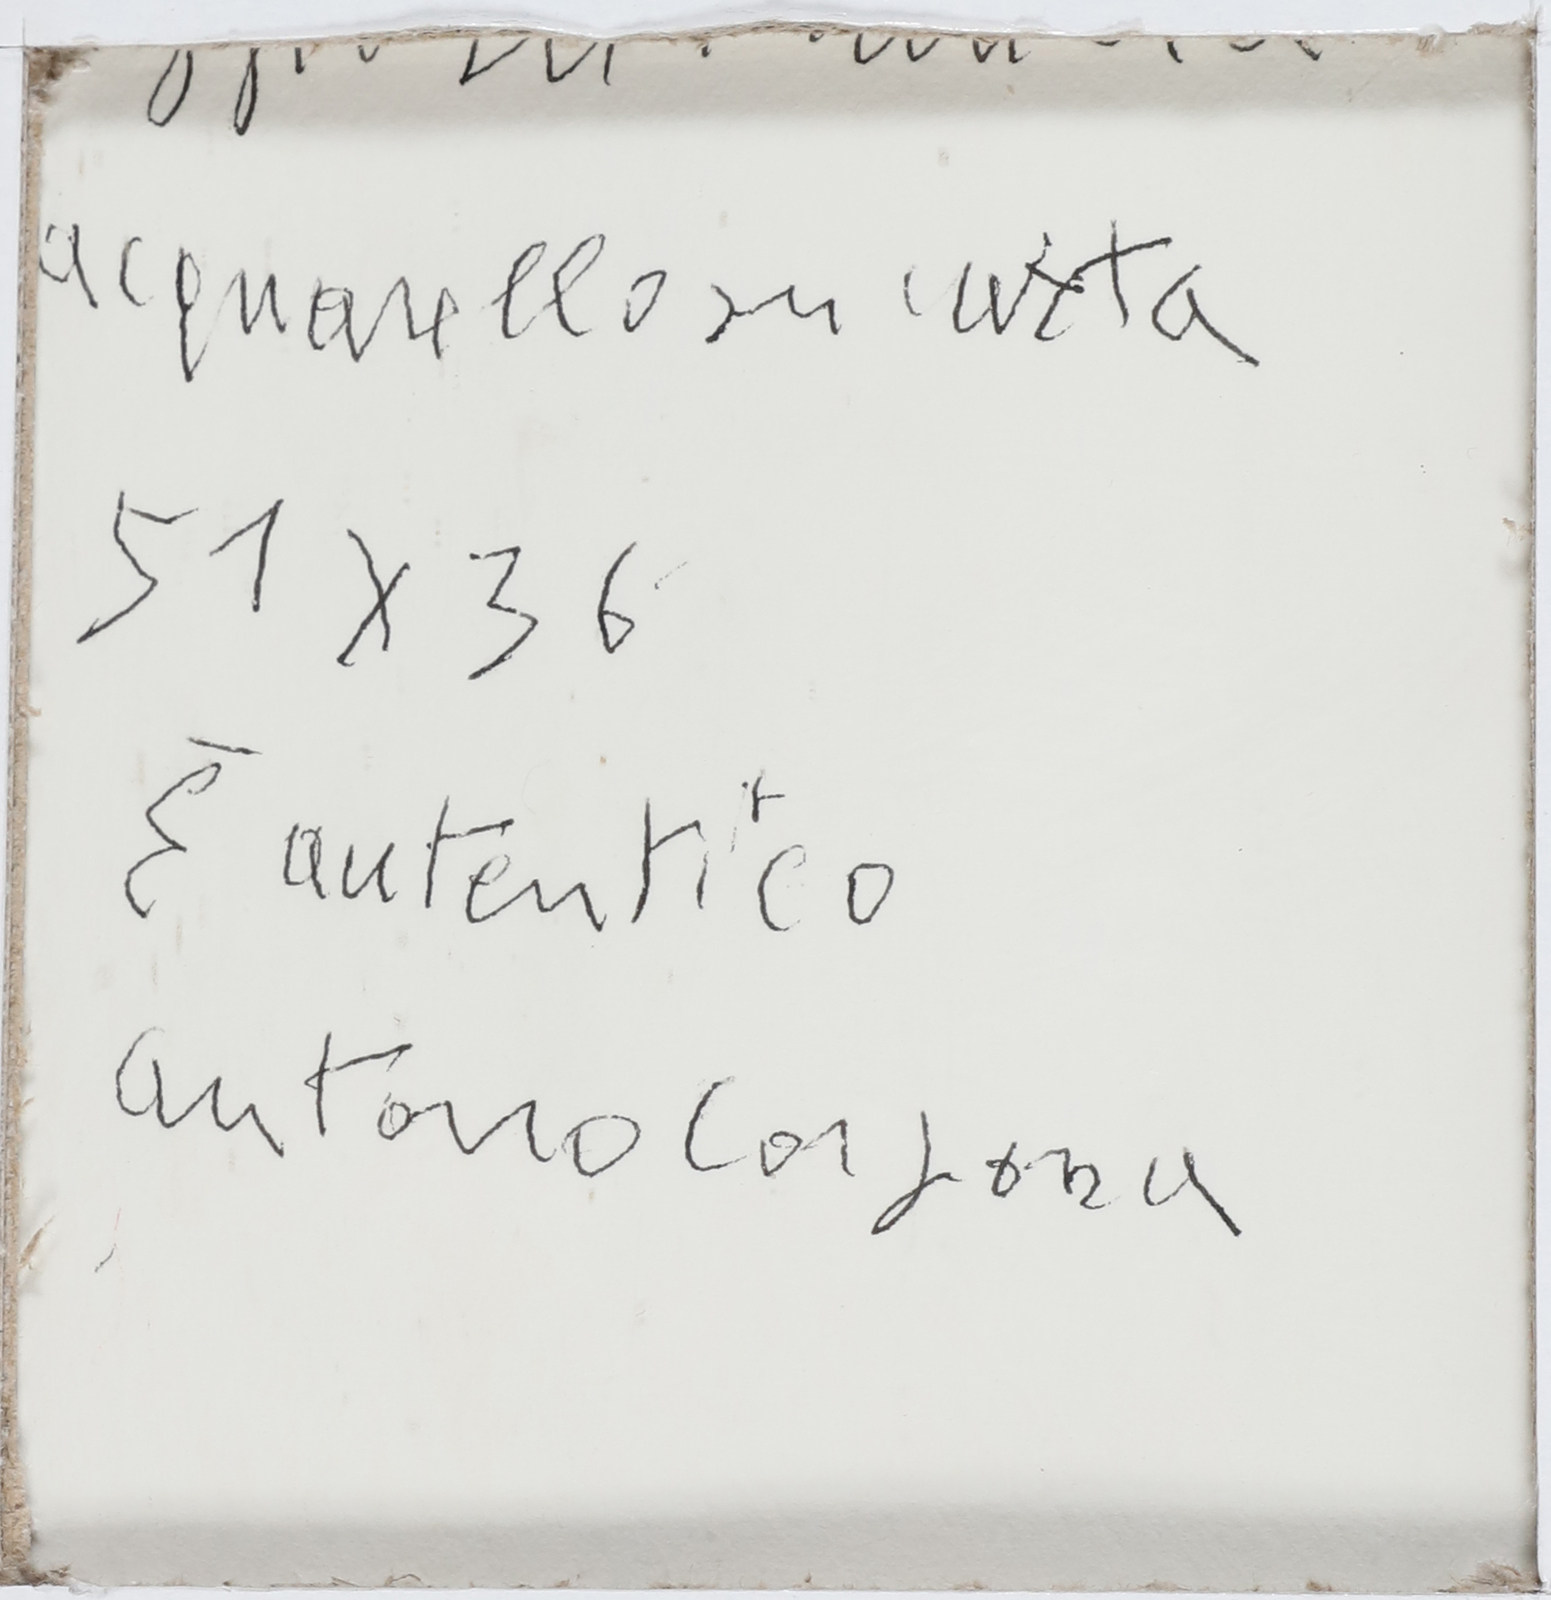 acquarello su carta
51 x 36
È autentico
antonio Corpora